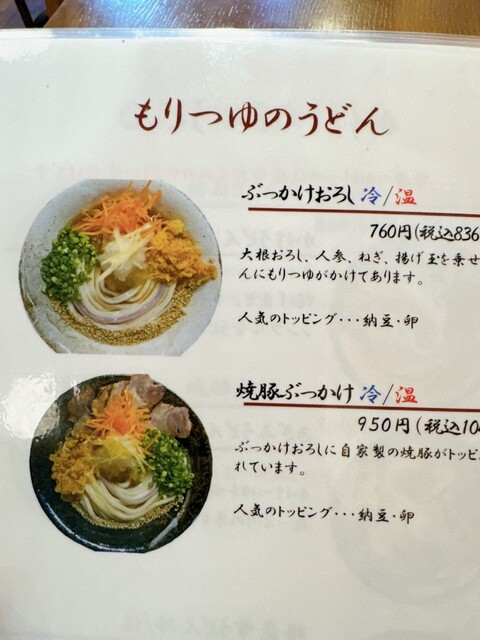 もりつゆのうどん
ぶっかけおろし 冷/温
760円(税込836
大根おろし、人参、ねぎ、揚げ玉を乗せ
んにもりつゆがかけてあります。
人気のトッピング・・・納豆・卵
焼豚ぶっかけ 冷/温
950円(税込104
ぶっかけおろしに自家製の焼豚がトッピ
れています。
人気のトッピング・・・納豆・卵